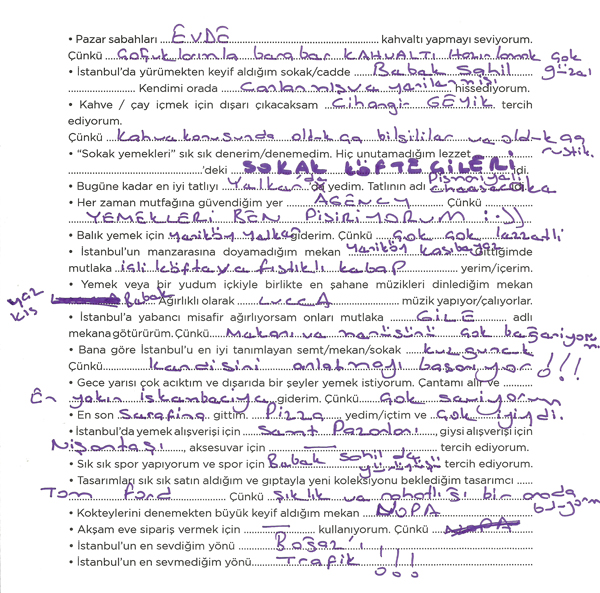 • Pazar sabahları EVDE kahvaltı yapmayı seviyorum.
Çünkü Çocuklarımla beraber KAHVALTI Hazırlamak çok güzel
• İstanbul'da yürümekten keyif aldığım sokak/cadde Bebek Sahil
Kendimi orada Canlanmış ve yenilenmiş hissediyorum.
• Kahve / çay içmek için dışarı çıkacaksam Cihangir GEYİK tercih
ediyorum.
Çünkü Kahve konusunda oldukça bilgililer ve oldukça rustik.
• "Sokak yemekleri" sık sık denerim/denemedim. Hiç unutamadığım lezzet
'deki SOKAK KÖFTECİLERİ 'di.
• Bugüne kadar en iyi tatlıyı Yelken'de 'da yedim. Tatlının adı Pişmaniyeli cheesecake di.
• Her zaman mutfağına güvendiğim yer AGENCY Çünkü
YEMEKLERİ BEN PİŞİRİYORUM :-))
• Balık yemek için Yeniköy Yelken giderim. Çünkü çok çok lezzetli
• İstanbul'un manzarasına doyamadığım mekan Yeniköy kaşıbeyaz Gittiğimde
mutlaka içli köfte ve fıstıklı kebap yerim/içerim.
• Yemek veya bir yudum içkiyle birlikte en şahane müzikleri dinlediğim mekan
yaz kış Bebek. Ağırlıklı olarak LuccA müzik yapıyor/çalıyorlar.
• İstanbul'a yabancı misafir ağırlıyorsam onları mutlaka GİLE adlı
mekana götürürüm. Çünkü Mekanı ve menüsünü çok beğeniyorum
• Bana göre İstanbul'u en iyi tanımlayan semt/mekan/sokak kuzguncuk
Çünkü kendisini anlatmayı başarıyor !!!
• Gece yarısı çok acıktım ve dışarıda bir şeyler yemek istiyorum. Çantamı alır ve
En yakın işkembeciye giderim. Çünkü çok seviyorum
• En son Serafina gittim. Pizza yedim/içtim ve çok iyiydi.
• İstanbul'da yemek alışverişi için Semt Pazarları, giysi alışverişi için
Nişantaşı, aksesuvar için — tercih ediyorum.
• Sık sık spor yapıyorum ve spor için Bebek sahil de yürüyüşü tercih ediyorum.
• Tasarımları sık sık satın aldığım ve gıptayla yeni koleksiyonu beklediğim tasarımcı
Tom Ford Çünkü Şıklık ve rahatlığı bir arada buluyorum
• Kokteylerini denemekten büyük keyif aldığım mekan NOPA
• Akşam eve sipariş vermek için — kullanıyorum. Çünkü
• İstanbul'un en sevdiğim yönü Boğaz'ı
• İstanbul'un en sevmediğim yönü Trafik !!!